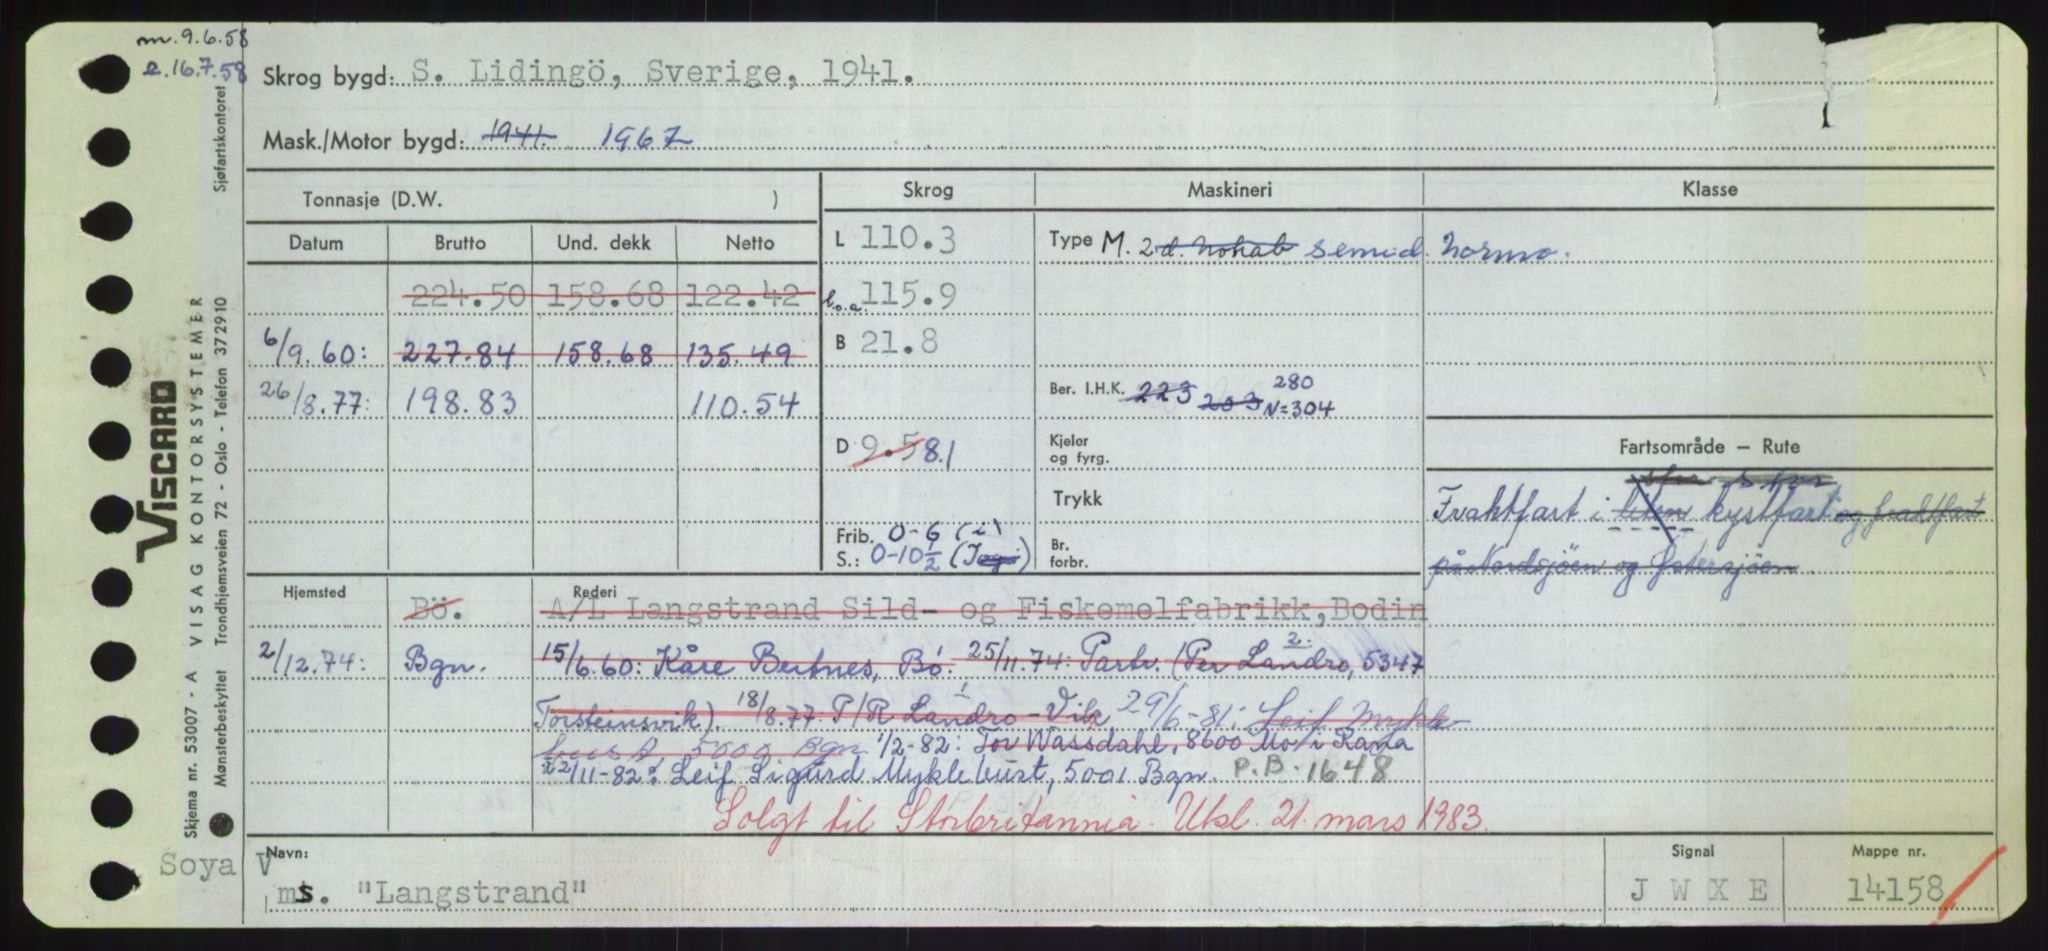 m. 9.6.58
e. 16.7.58
Skrog bygd: S. Lidingö, Sverige, 1941.
Mask./Motor bygd: 1941. 1967
Tonnasje (D.W. )
Skrog
Maskineri
Klasse
Datum Brutto Und. dekk Netto
L 110.3
Type M. 2 d. Nohab semid. Normo.
224.50 158.68 122.42
l.o.a. 115.9
6/9.60: 227.84 158.68 135.49
B 21.8
26/8.77: 198.83 110.54
Ber. I.H.K. 223 203 280
N=304
D 9.5 8.1
Kjeler
og fyrg.
Fartsområde – Rute
Trykk
Fraktfart i kystfart og fraktfart
på Nordsjöen og Östersjöen
Frib. 0-6 (i)
S.: 0-10 1/2
Br.
forbr.
Hjemsted Bö.
Rederi A/L Langstrand Sild- og Fiskemelfabrikk, Bodin
2/12.74: Bgn. 15/6.60: Kåre Bertnes, Bö. 25/11.74: Partr. (Per Landro, 5347
Torsteinsvik). 18/8.77: P/R Landro-Vik 29/6-81: Leif Mykle-
bust, 5000 Bgn 1/2-82: Tov Wassdahl, 8600 Mo i Rana
22/11-82: Leif Sigurd Myklebust, 5001 Bgn. P.B. 1648
Solgt til Storbritannia. Utsl. 21. mars 1983.
Soya V
Navn: ms. "Langstrand"
Signal J W X E
Mappe nr. 14158
VISCARD
Skjema nr. 53007 - A VISAG KONTORSYSTEMER Sjøfartskontoret
Mønsterbeskyttet Trondhjemsveien 72 - Oslo - Telefon 372910